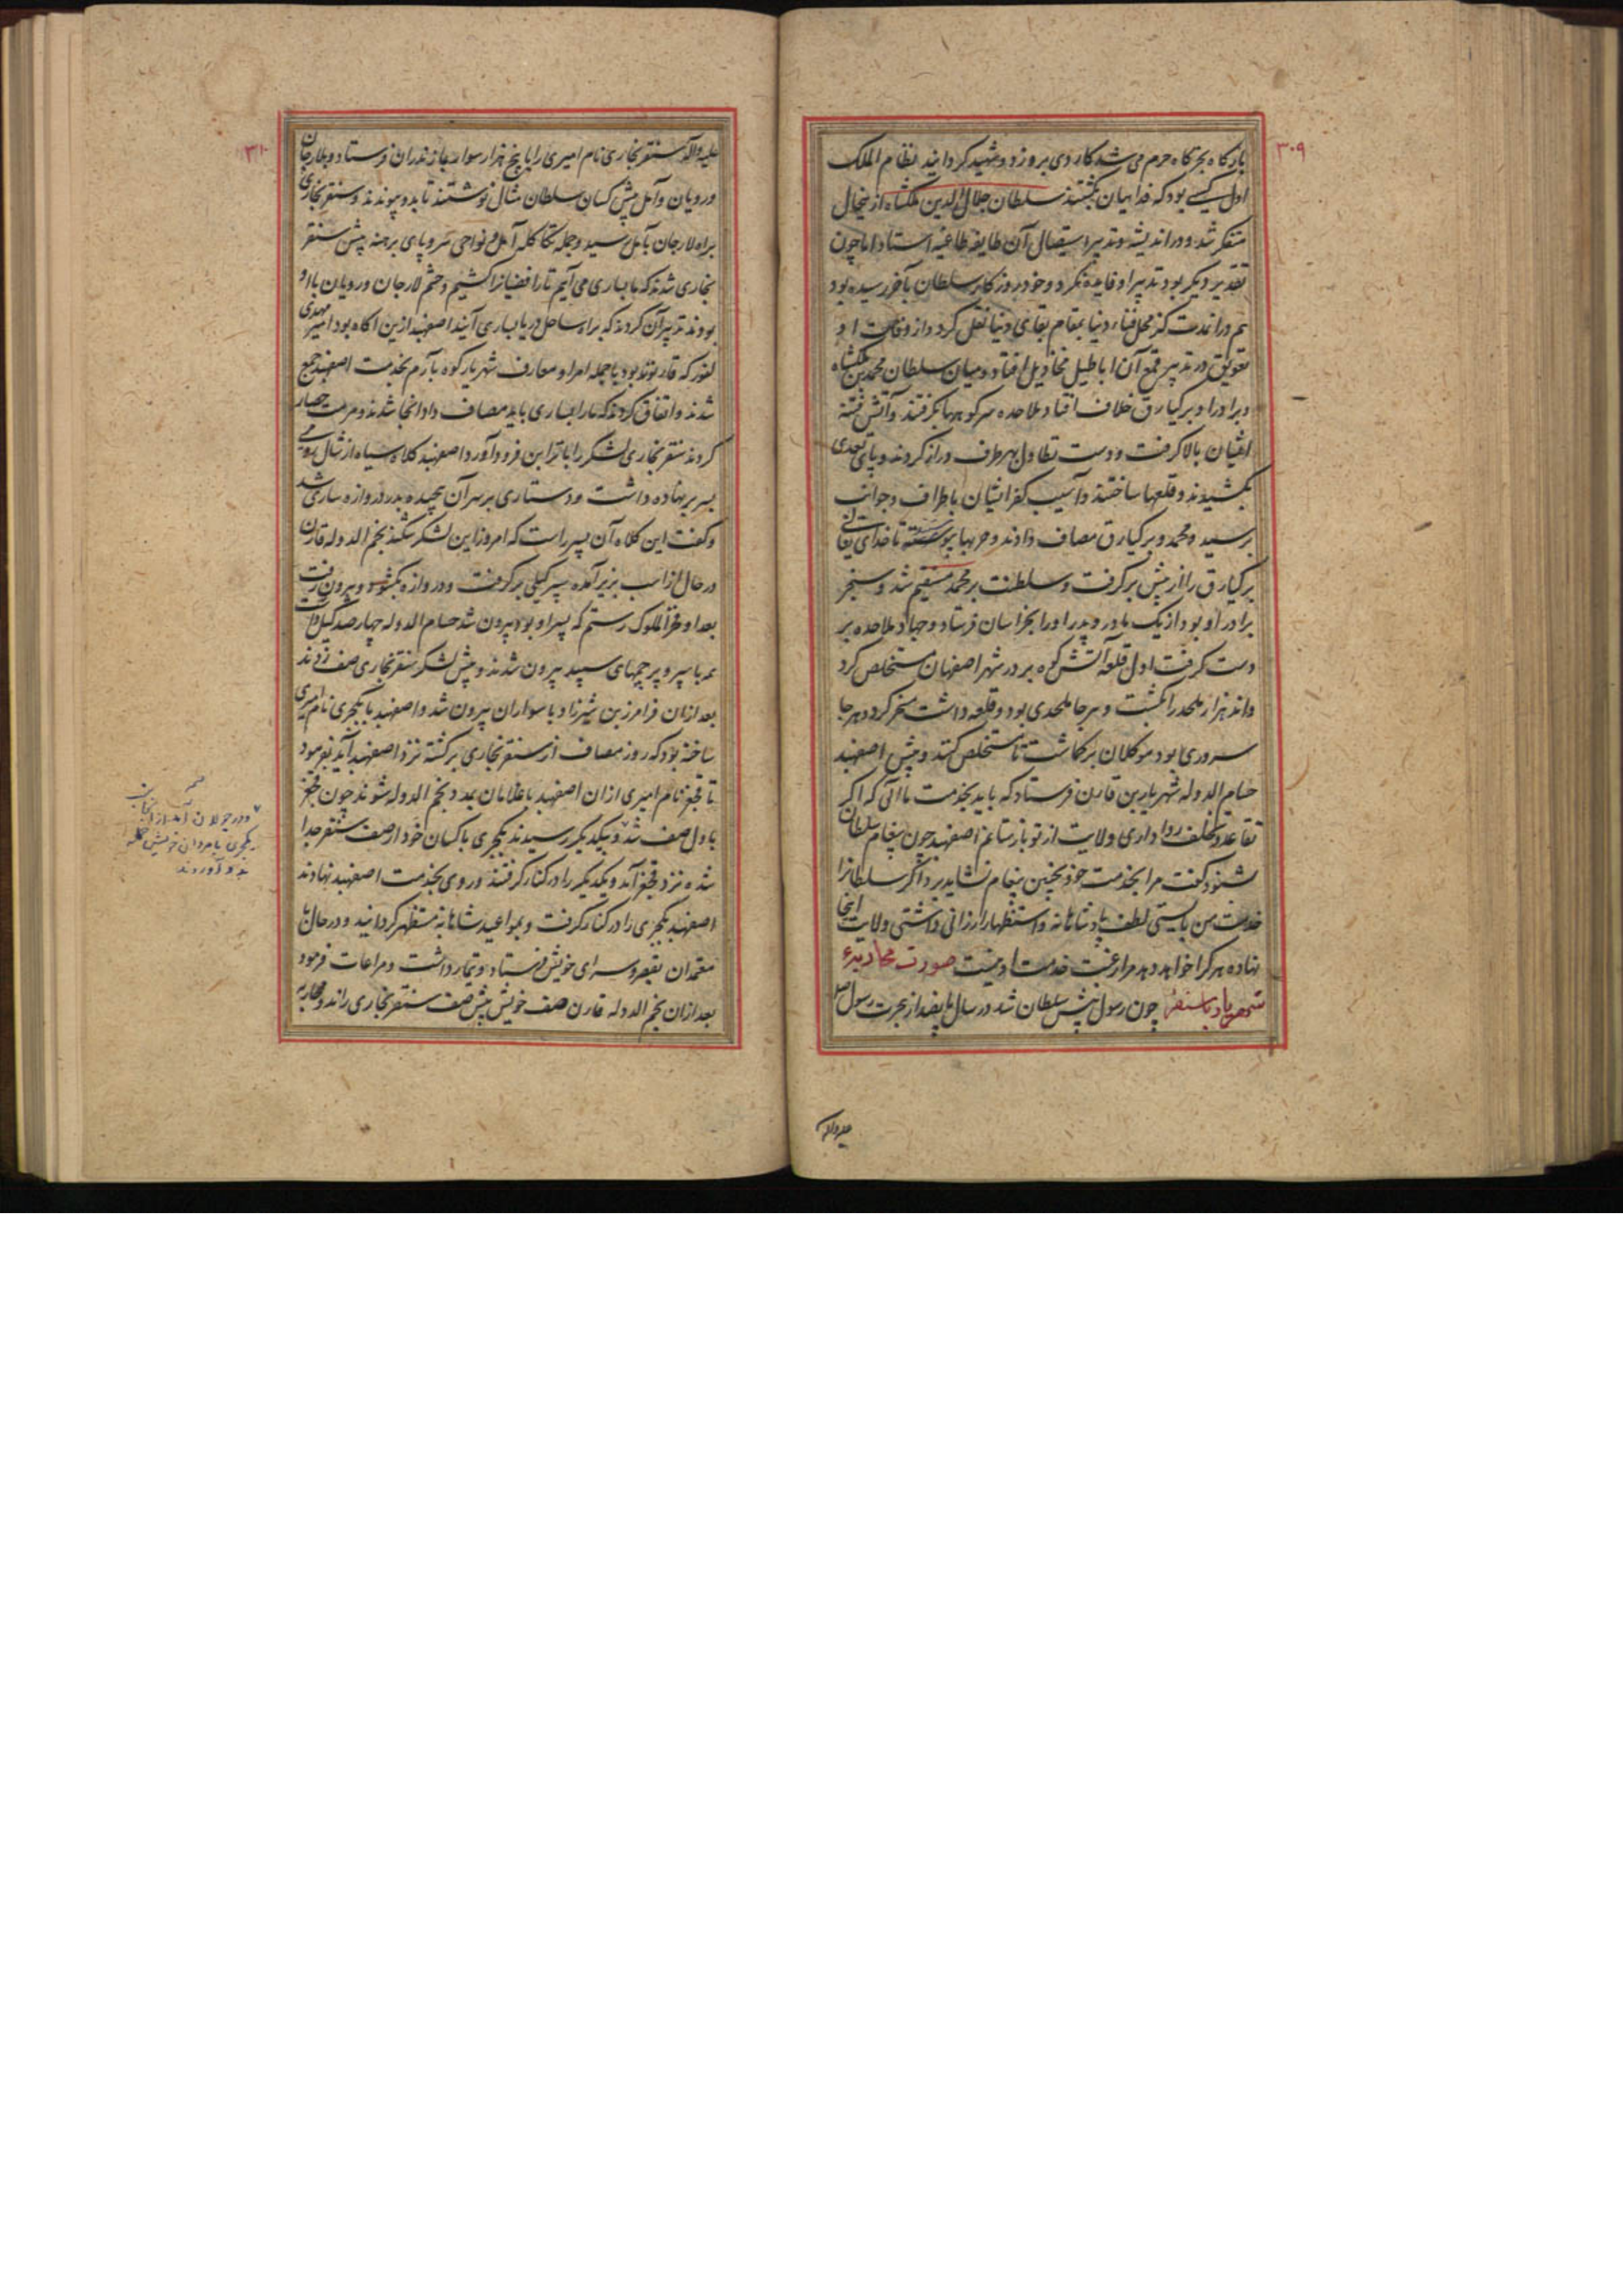 ۳۰۹
بارگاه بخرگاه حرم می شد کاردی برو زد و شهید کردانید نظام الملک
اول کسی بود که فداییان بکشتند سلطان جلال الدین ملکشاه ازینحال
متفکر شد و در اندیشه و تدبیر استیصال آن طایفه طاغیه استاد اما چون
تقدیر دیکر بود تدبیر او فایده نکرد و خود روزکار سلطان بآخر رسیده بود
هم در آن مدت کز محل فناء دنیا بمقام بقای نقل کرد و از وفات او
تعویق در تدبیر قمع آن اباطیل مخاذیل افتاد و میان سلطان محمد بن ملکشاه
و برادر او برکیارق خلاف افتاد ملاحده سر کوهها بکرفتند و آتش فتنه
ایشان بالا کرفت و دست تطاول بهر طرف دراز کردند و پای تعدی
بکشیدند و قلعها ساختند و آسیب کفر ایشان باطراف و جوانب
برسید و محمد و برکیارق مصاف دادند و حربها پیوسته تا خدای تعالی
برکیارق را از پیش برکرفت و سلطنت بر محمد مستقیم شد و سنجر
برادر او بود از یک مادر و پدر او را بخراسان فرستاد و جهاد ملاحده بر
دست کرفت اول قلعه آتش کوه بر در شهر اصفهان مستخلص کرد
و اند هزار ملحد را بکشت و هر جا ملحدی بود و قلعه داشت مسخر کرد و هر جا
سروری بود موکلان برکماشت تا مستخلص کنند و پیش اصفهبد
حسام الدوله شهریار بن قارن فرستاد که باید بخدمت ما آئی که اکر
تقاعد و تخلف روا داری ولایت از تو باز ستانم اصفهبد چون پیغام سلطان
شنود کفت مرا بخدمت خود بچنین پیغام نشاید برد اکر سلطانرا
خدمت من بایستی لطف پادشاهانه و استظهار ارزانی داشتی ولایت اینجا
نهاده هر کرا خواهد دهد مرا رغبت خدمت او نیست صورت محاربهٔ
شهریار با سنقر چون رسول پیش سلطان شد در سال پانصد از هجرت رسول صلی
علیه و آله
۳۱۰
علیه و آله سنقر بخاری نام امیری را با پنج هزار سوار بمازندران فرستاد و بلارجان
و رویان و آمل پیش کسان سلطان مثال نوشتند تا بدو پیوندند و سنقر بخاری
براه لارجان بآمل رسید و جمله تکاکله آمل و نواحی سر و پای برهنه پیش سنقر
بخاری شدند که ما بساری می آیم تا رافضیانرا کشیم و حشم لارجان و رویان با او
بودند تدبیر آن کردند که براه ساحل دریا بساری آیند اصفهبد ازین آکاه بود امیر مهدی
لفور که قارنوند بود با جمله امرا و معارف شهریارکوه بآرم بخدمت اصفهبد جمع
شدند و اتفاق کردند که ما را بساری باید مصاف داد آنجا شدند و مرمت حصار
کردند سنقر بخاری لشکر را باترابن فرود آورد اصفهبد کلاه سیاه از شال رومی
بسر بر نهاده داشت و دستاری بر سر آن پیچیده بدر دروازه ساری شد
و کفت این کلاه آن پسر راست که امروز این لشکر شکند نجم الدوله قارن
در حال از اسب بزیر آمده سپر کیلی برکرفت و دروازه بکشود و بیرون رفت
بعد او فخر الملوک رستم که پسر او بود بیرون شد حسام الدوله چهار صد کیل داشت
همه با سپر و پرچمهای سپید بیرون شدند و پیش لشکر سنقر بخاری صف زدند
بعد ازان فرامرز بن شیرزاد با سواران بیرون شد و اصفهبد با بکجری نام امیری
ساخته بود که روز مصاف از سنقر بخاری برکشته نزد اصفهبد آید بفرمود
تا قجغر نام امیری ازان اصفهبد با غلامان بمدد نجم الدوله شوند چون قجغر
باول صف شد و بیکدیکر رسیدند بکجری با کسان خود از صف سنقر جدا
شده نزد قجغر آمد و یکدیکر را در کنار کرفتند و روی بخدمت اصفهبد نهادند
اصفهبد بکجری را در کنار کرفت و بمواعید شاهانه مستظهر کردانید و در حال با
معتمدان بقصر و سرای خویش فرستاد و تیمار داشت و مراعات فرمود
بعد ازان نجم الدوله قارن صف خویش پیش صف سنقر بخاری راند و محاربه
و در جولان آمد از آنجانب
بکجری با مردان خویش حمله
بدو آوردند